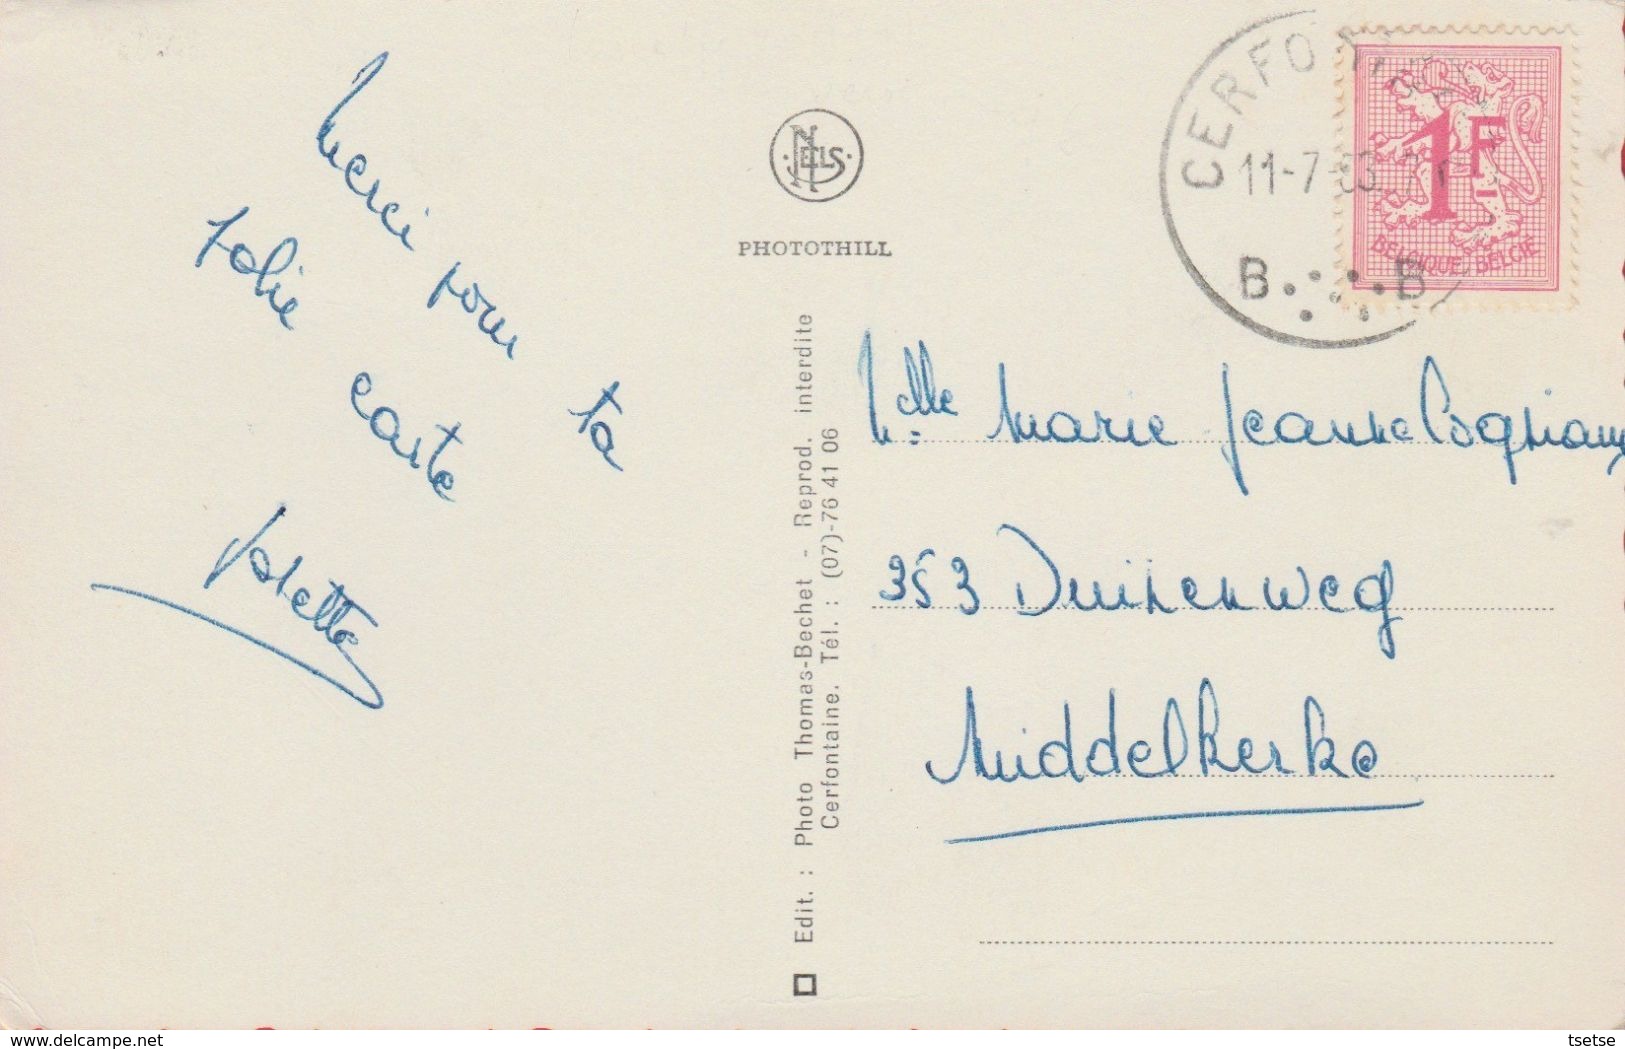 Merci pour ta
jolie carte
Josette
NELS
PHOTOTHILL
Edit. : Photo Thomas-Bechet - Reprod. interdite
Cerfontaine. Tél. : (07)-76 41 06
CERFO
11-7
B B
1F
BELGIQUE BELGIE
Melle Marie Jeanne
353 Duinenweg
Middelkerke
delcampe.net
tsetse